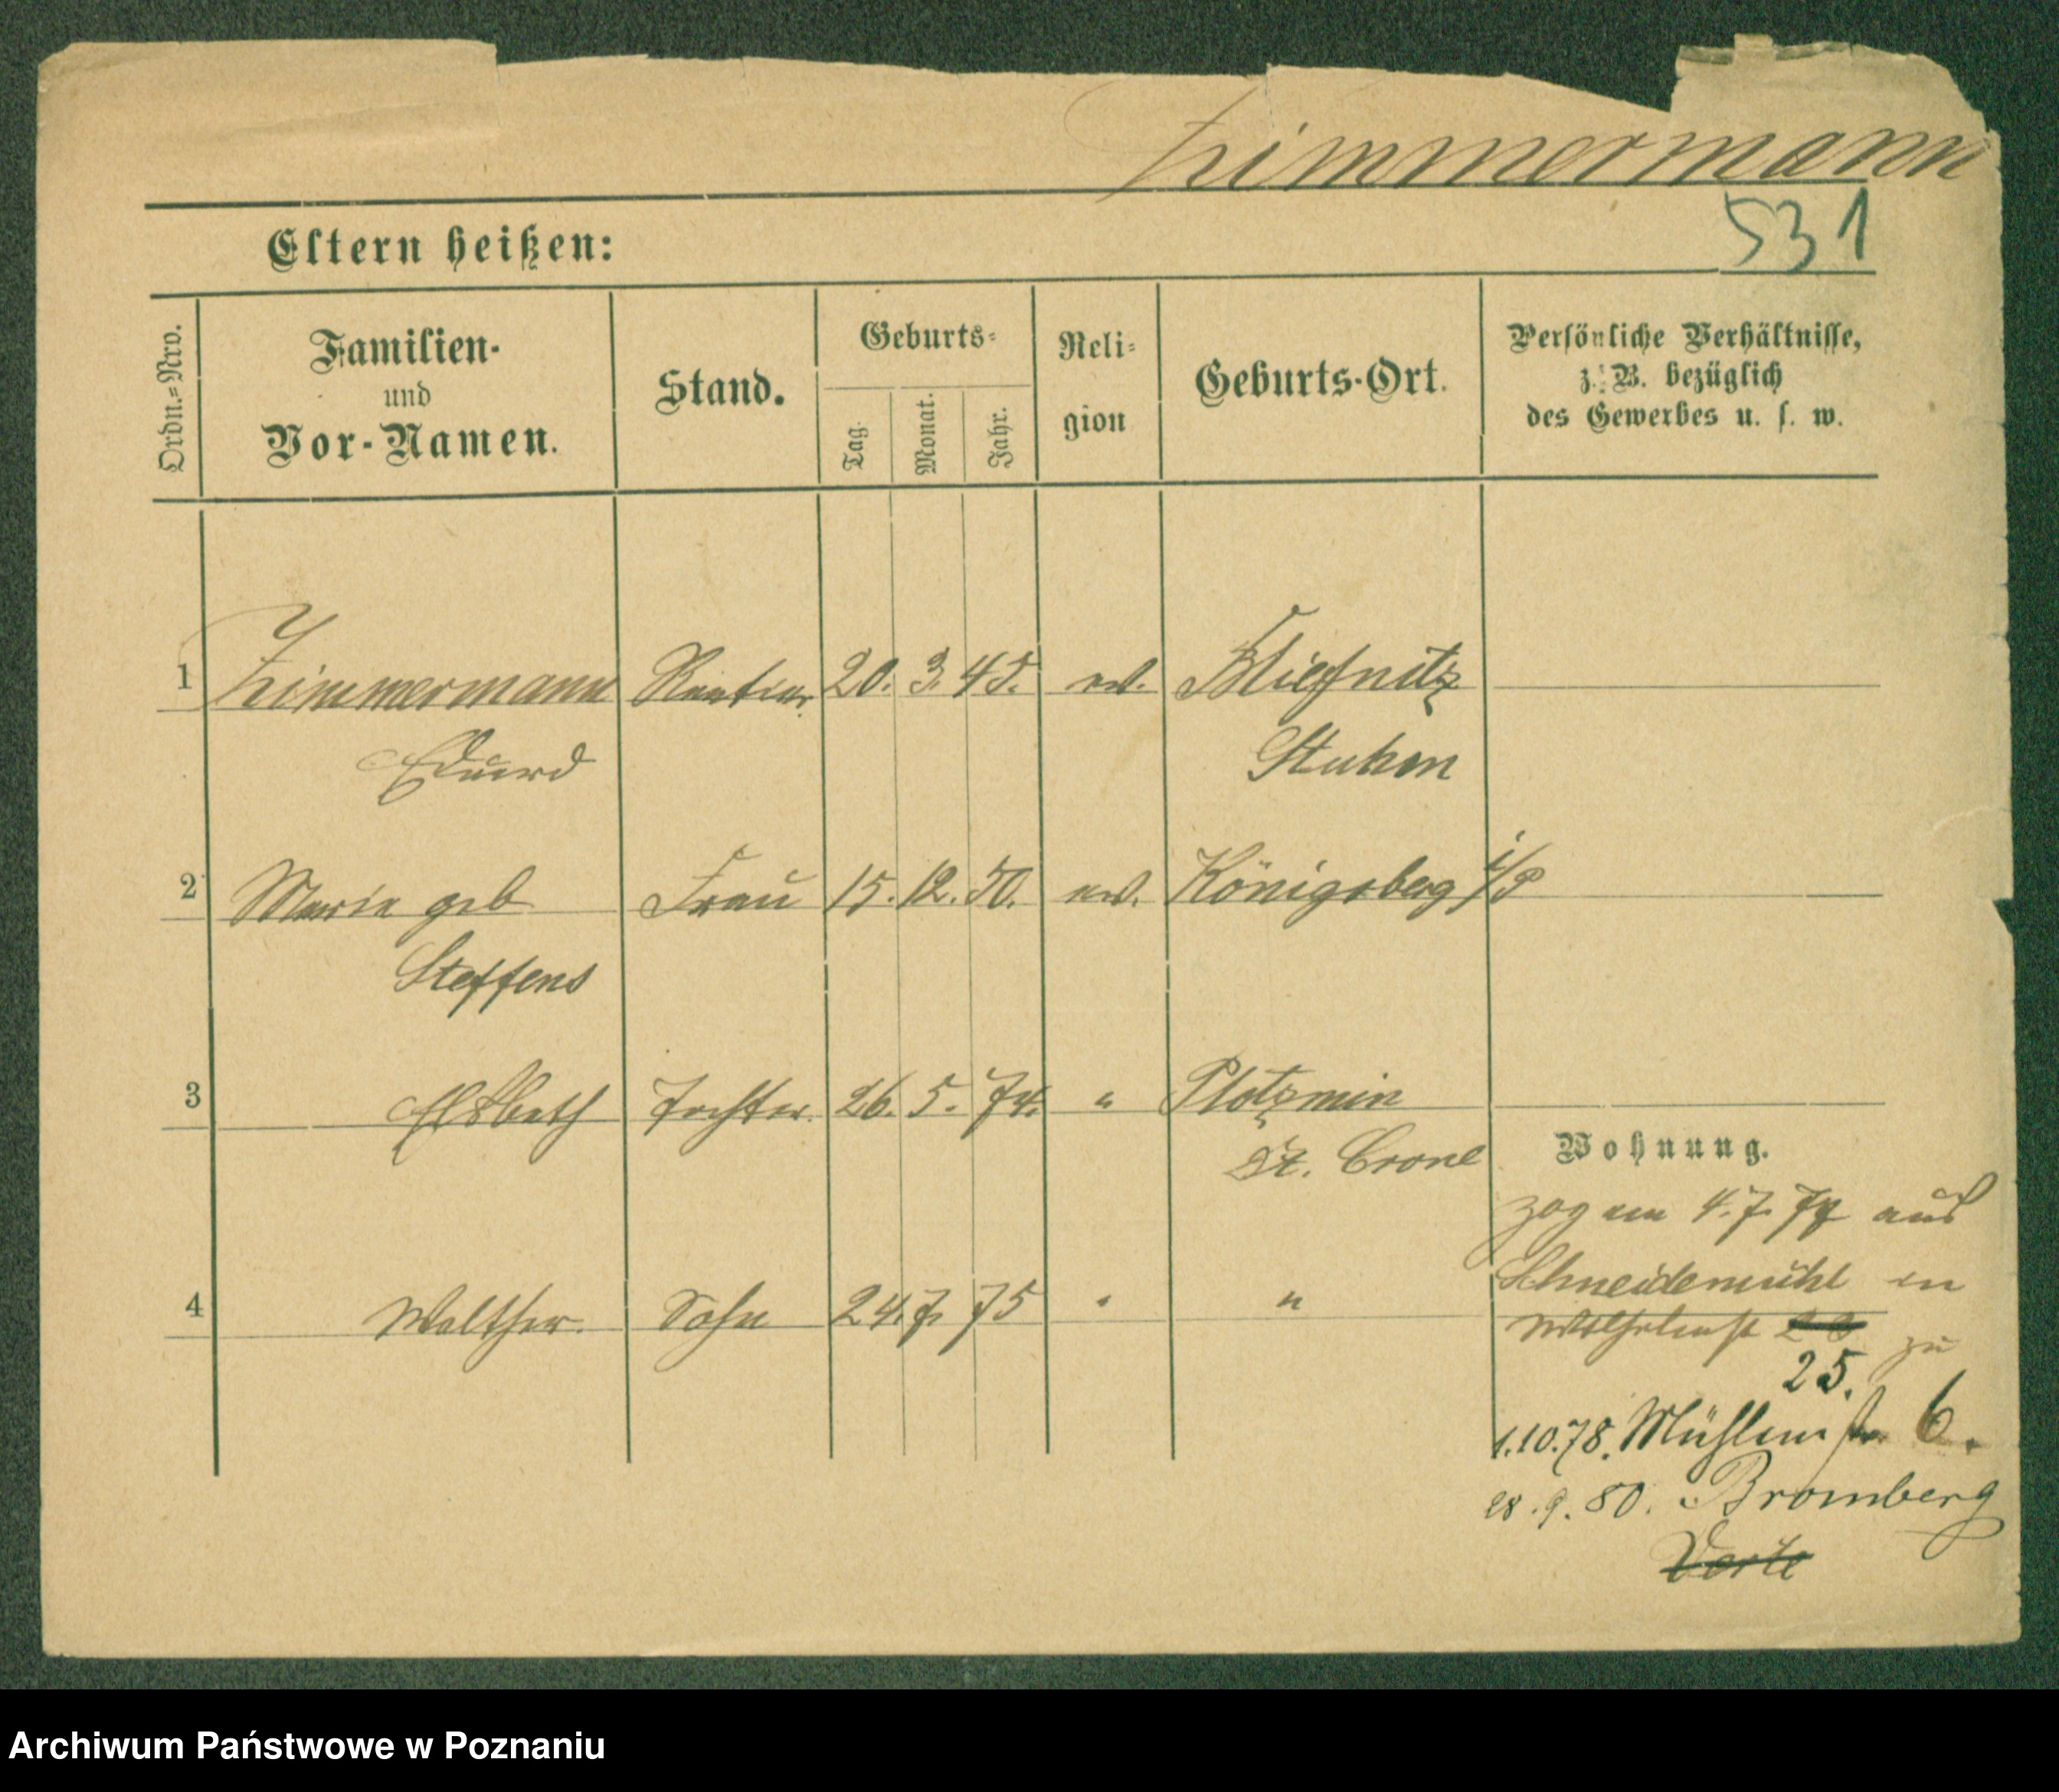 Zimmermann
531
Eltern heißen:
Ordn.=Nro.
Familien-
und
Vor-Namen.
Stand.
Geburts=
Tag.
Monat.
Jahr.
Reli=
gion
Geburts-Ort.
Persönliche Verhältnisse,
z. B. bezüglich
des Gewerbes u. s. w.
1 Zimmermann Rentier 20. 3. 45. ev.
Eduard Stuhm
2 Marie geb Frau 15. 12. 50. ev. Königsberg i/P
Steffens
3 Elsbeth Tochter. 26. 5. 74. " Plötzmin
Dt. Crone
4 Walther. Sohn 24. 7. 75 " "
Wohnung.
zog am 4. 7. 77 aus
Schneidemühl in
Wilhelmst zu
25.
1.10.78. Mühlenstr 6.
28. 9. 80. Bromberg
Verte
Archiwum Państwowe w Poznaniu